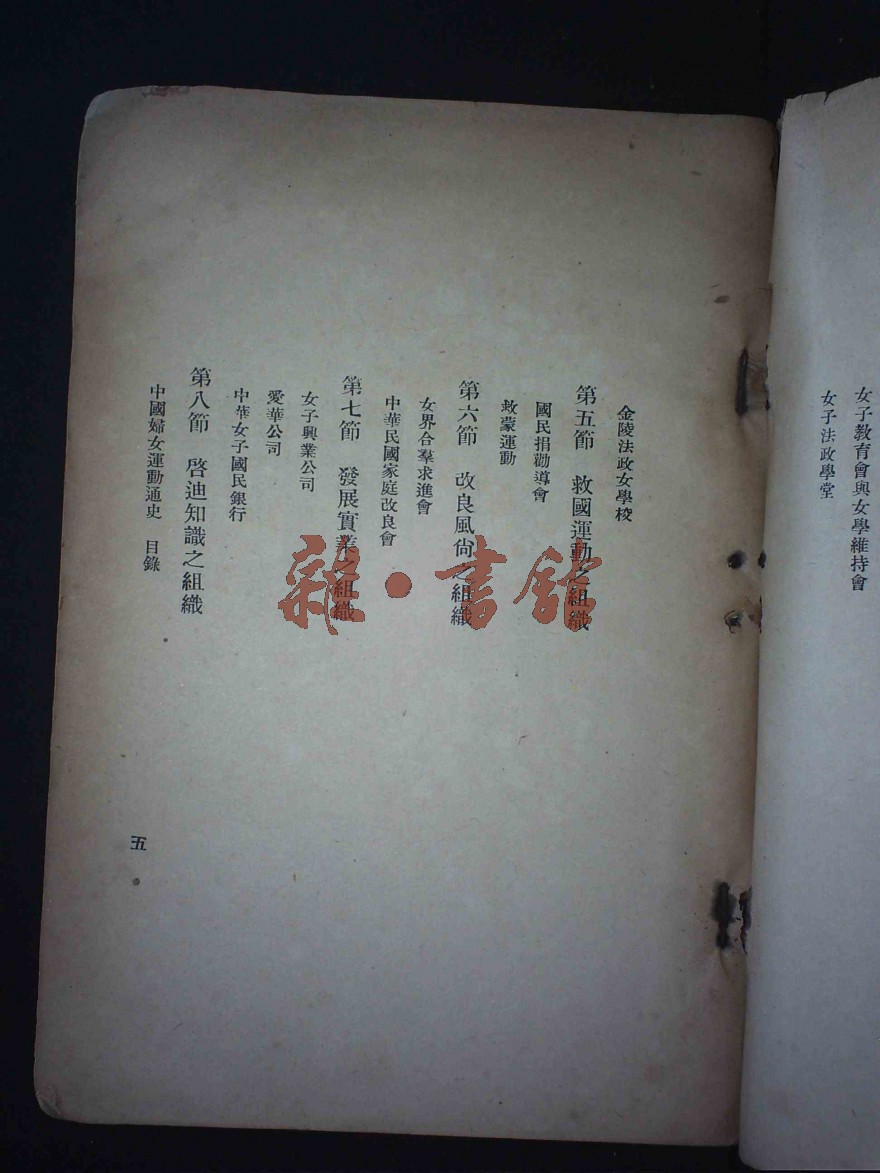 女子教育會與女學維持會
女子法政學堂
金陵法政女學校
第五節 救國運動之組織
國民捐勸導會
救蒙運動
第六節 改良風尙之組織
女界合羣求進會
中華民國家庭改良會
第七節 發展實業之組織
女子興業公司
愛華公司
中華女子國民銀行
第八節 啓迪知識之組織
中國婦女運動通史 目錄
五
雜·書館